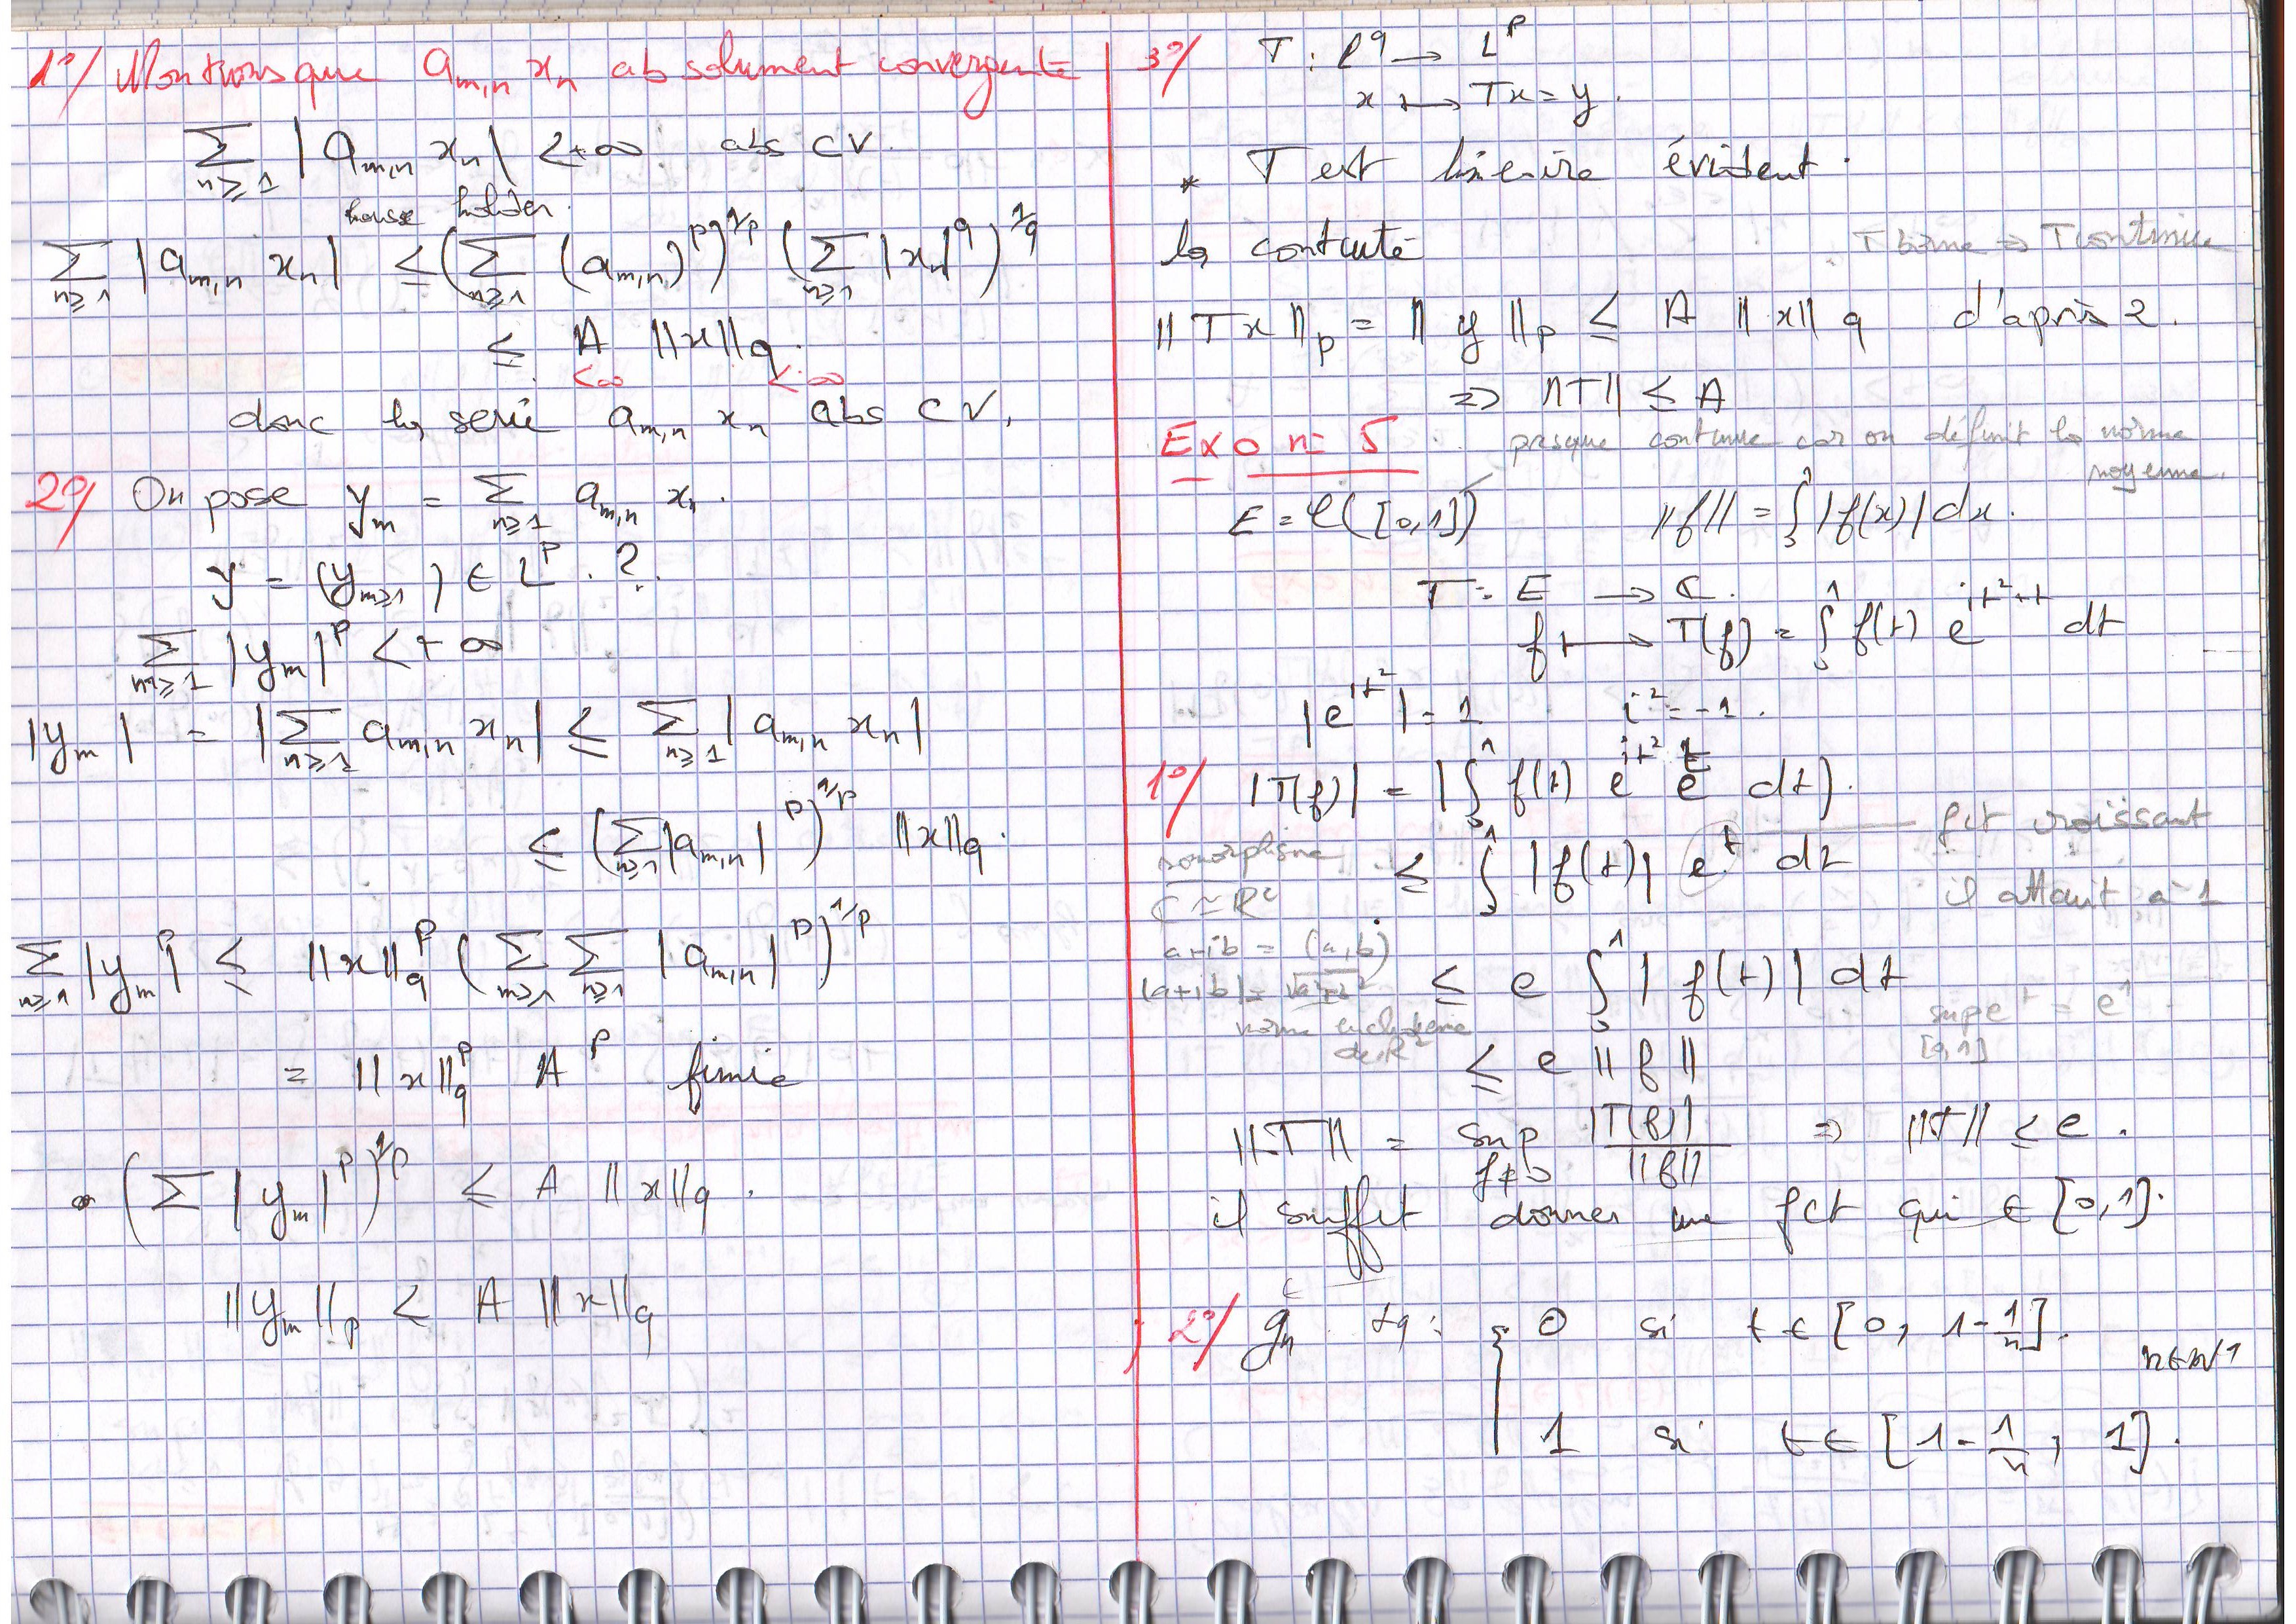 1°/ Montrons que a_{m,n} x_n absolument convergente
∑_{n≥1} | a_{m,n} x_n | < +∞ abs CV.
holder
∑_{n≥1} | a_{m,n} x_n | ≤ (∑_{n≥1} (a_{m,n})^p)^{1/p} (∑_{n≥1} |x_n|^q)^{1/q}
≤ A ||x||_q.
<∞ <∞
donc la serie a_{m,n} x_n abs CV.
2°/ On pose y_m = ∑_{n≥1} a_{m,n} x_n.
y = (y_{m≥1}) ∈ L^p . ?.
∑_{m≥1} |y_m|^p < +∞
|y_m| = |∑_{n≥1} a_{m,n} x_n| ≤ ∑_{n≥1} | a_{m,n} x_n |
≤ (∑_{n≥1} |a_{m,n}|^p)^{1/p} ||x||_q.
∑_{n≥1} |y_m|^p ≤ ||x||_q^p (∑_{m≥1} ∑_{n≥1} |a_{m,n}|^p)^{1/p}
= ||x||_q^p A^p finie
(∑ |y_m|^p)^{1/p} ≤ A ||x||_q.
||y_m||_p < A ||x||_q
3°/ T : l^q → L^p
x ⟼ Tx = y.
* T est linéaire évident.
la contuté
T borne ⇒ T continue
||Tx||_p = || y ||_p ≤ A ||x||_q d'après 2.
⇒ ||T|| ≤ A
Exo n= 5
presque continue car on définit la norme
moyenne.
E = C([0,1]) ||f|| = ∫_0^1 |f(x)| dx.
T = E → C.
f ⟼ T(f) = ∫_0^1 f(t) e^{it²+t} dt
|e^{it²}| = 1 i² = -1.
1°/ |T(f)| = |∫_0^1 f(t) e^{it²} e^t dt|.
≤ ∫_0^1 |f(t)| e^t dt
fct croissant
il attait à 1
isomorphisme
C ≃ R²
a+ib = (a,b)
|a+ib| = √a²+b²
norme euclidienne
de R²
≤ e ∫_0^1 | f(t) | dt
sup e^t = e^1
[0,1]
≤ e || f ||
||T|| = sup_{f≠0} |T(f)| / ||f|| ⇒ ||T|| ≤ e.
il souffit donner une fct qui ∈ [0,1].
2°/ g_n tq : { 0 si t ∈ [0, 1-1/n].
1 si t ∈ [1-1/n, 1].